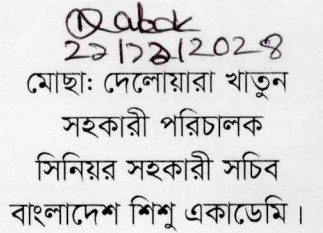 মোছা: দেলোয়ারা খাতুন
সহকারী পরিচালক
সিনিয়র সহকারী সচিব
বাংলাদেশ শিশু একাডেমি।